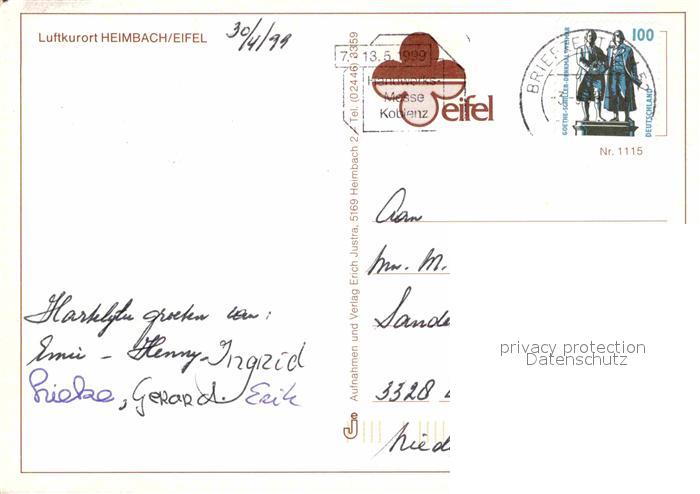 Luftkurort HEIMBACH/EIFEL
30/4/99
7.-13.5.1999
Handwerks-
Messe
Koblenz
eifel
BRIEFZENT
GOETHE-SCHILLER-DENKMAL WEIMAR
100
DEUTSCHLAND
Nr. 1115
Aufnahmen und Verlag Erich Justra, 5169 Heimbach 2 / Tel. (02446) 3359
Aan
Mw. M.
Sande
3328
Nied
privacy protection
Datenschutz
Hartelijke groeten van:
Emie - Henny - Ingrid
, Gerard. Erik